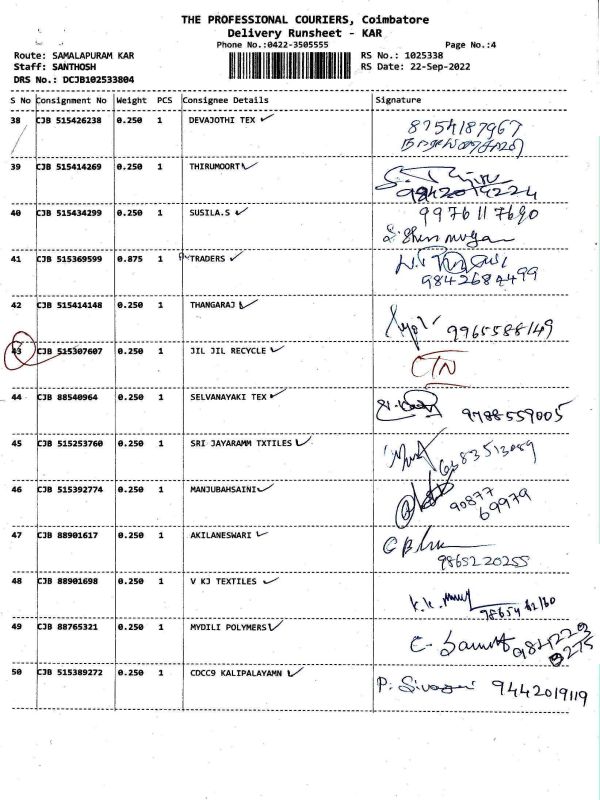 THE PROFESSIONAL COURIERS, Coimbatore
Delivery Runsheet - KAR
Phone No.:0422-3505555 Page No.:4
Route: SAMALAPURAM KAR RS No.: 1025338
Staff: SANTHOSH RS Date: 22-Sep-2022
DRS No.: DCJB102533804
S No Consignment No Weight PCS Consignee Details Signature
38 CJB 515426238 0.250 1 DEVAJOTHI TEX ✓ 8754187967
39 CJB 515414269 0.250 1 THIRUMOORT✓
9842014224
40 CJB 515434299 0.250 1 SUSILA.S ✓ 9976117690
S. Shanmugam
41 CJB 515369599 0.875 1 TRADERS ✓
9842684499
42 CJB 515414148 0.250 1 THANGARAJ ✓
9965588149
43 CJB 515307607 0.250 1 JIL JIL RECYCLE ✓ CTN
44 CJB 88540964 0.250 1 SELVANAYAKI TEX✓ 9788559005
45 CJB 515253760 0.250 1 SRI JAYARAMM TXTILES ✓ 6383513089
46 CJB 515392774 0.250 1 MANJUBAHSAINI✓ 90877
69979
47 CJB 88901617 0.250 1 AKILANESWARI ✓
9865220255
48 CJB 88901698 0.250 1 V KJ TEXTILES ✓
49 CJB 88765321 0.250 1 MYDILI POLYMERS✓
50 CJB 515389272 0.250 1 CDCC9 KALIPALAYAMN ✓ 9442019119